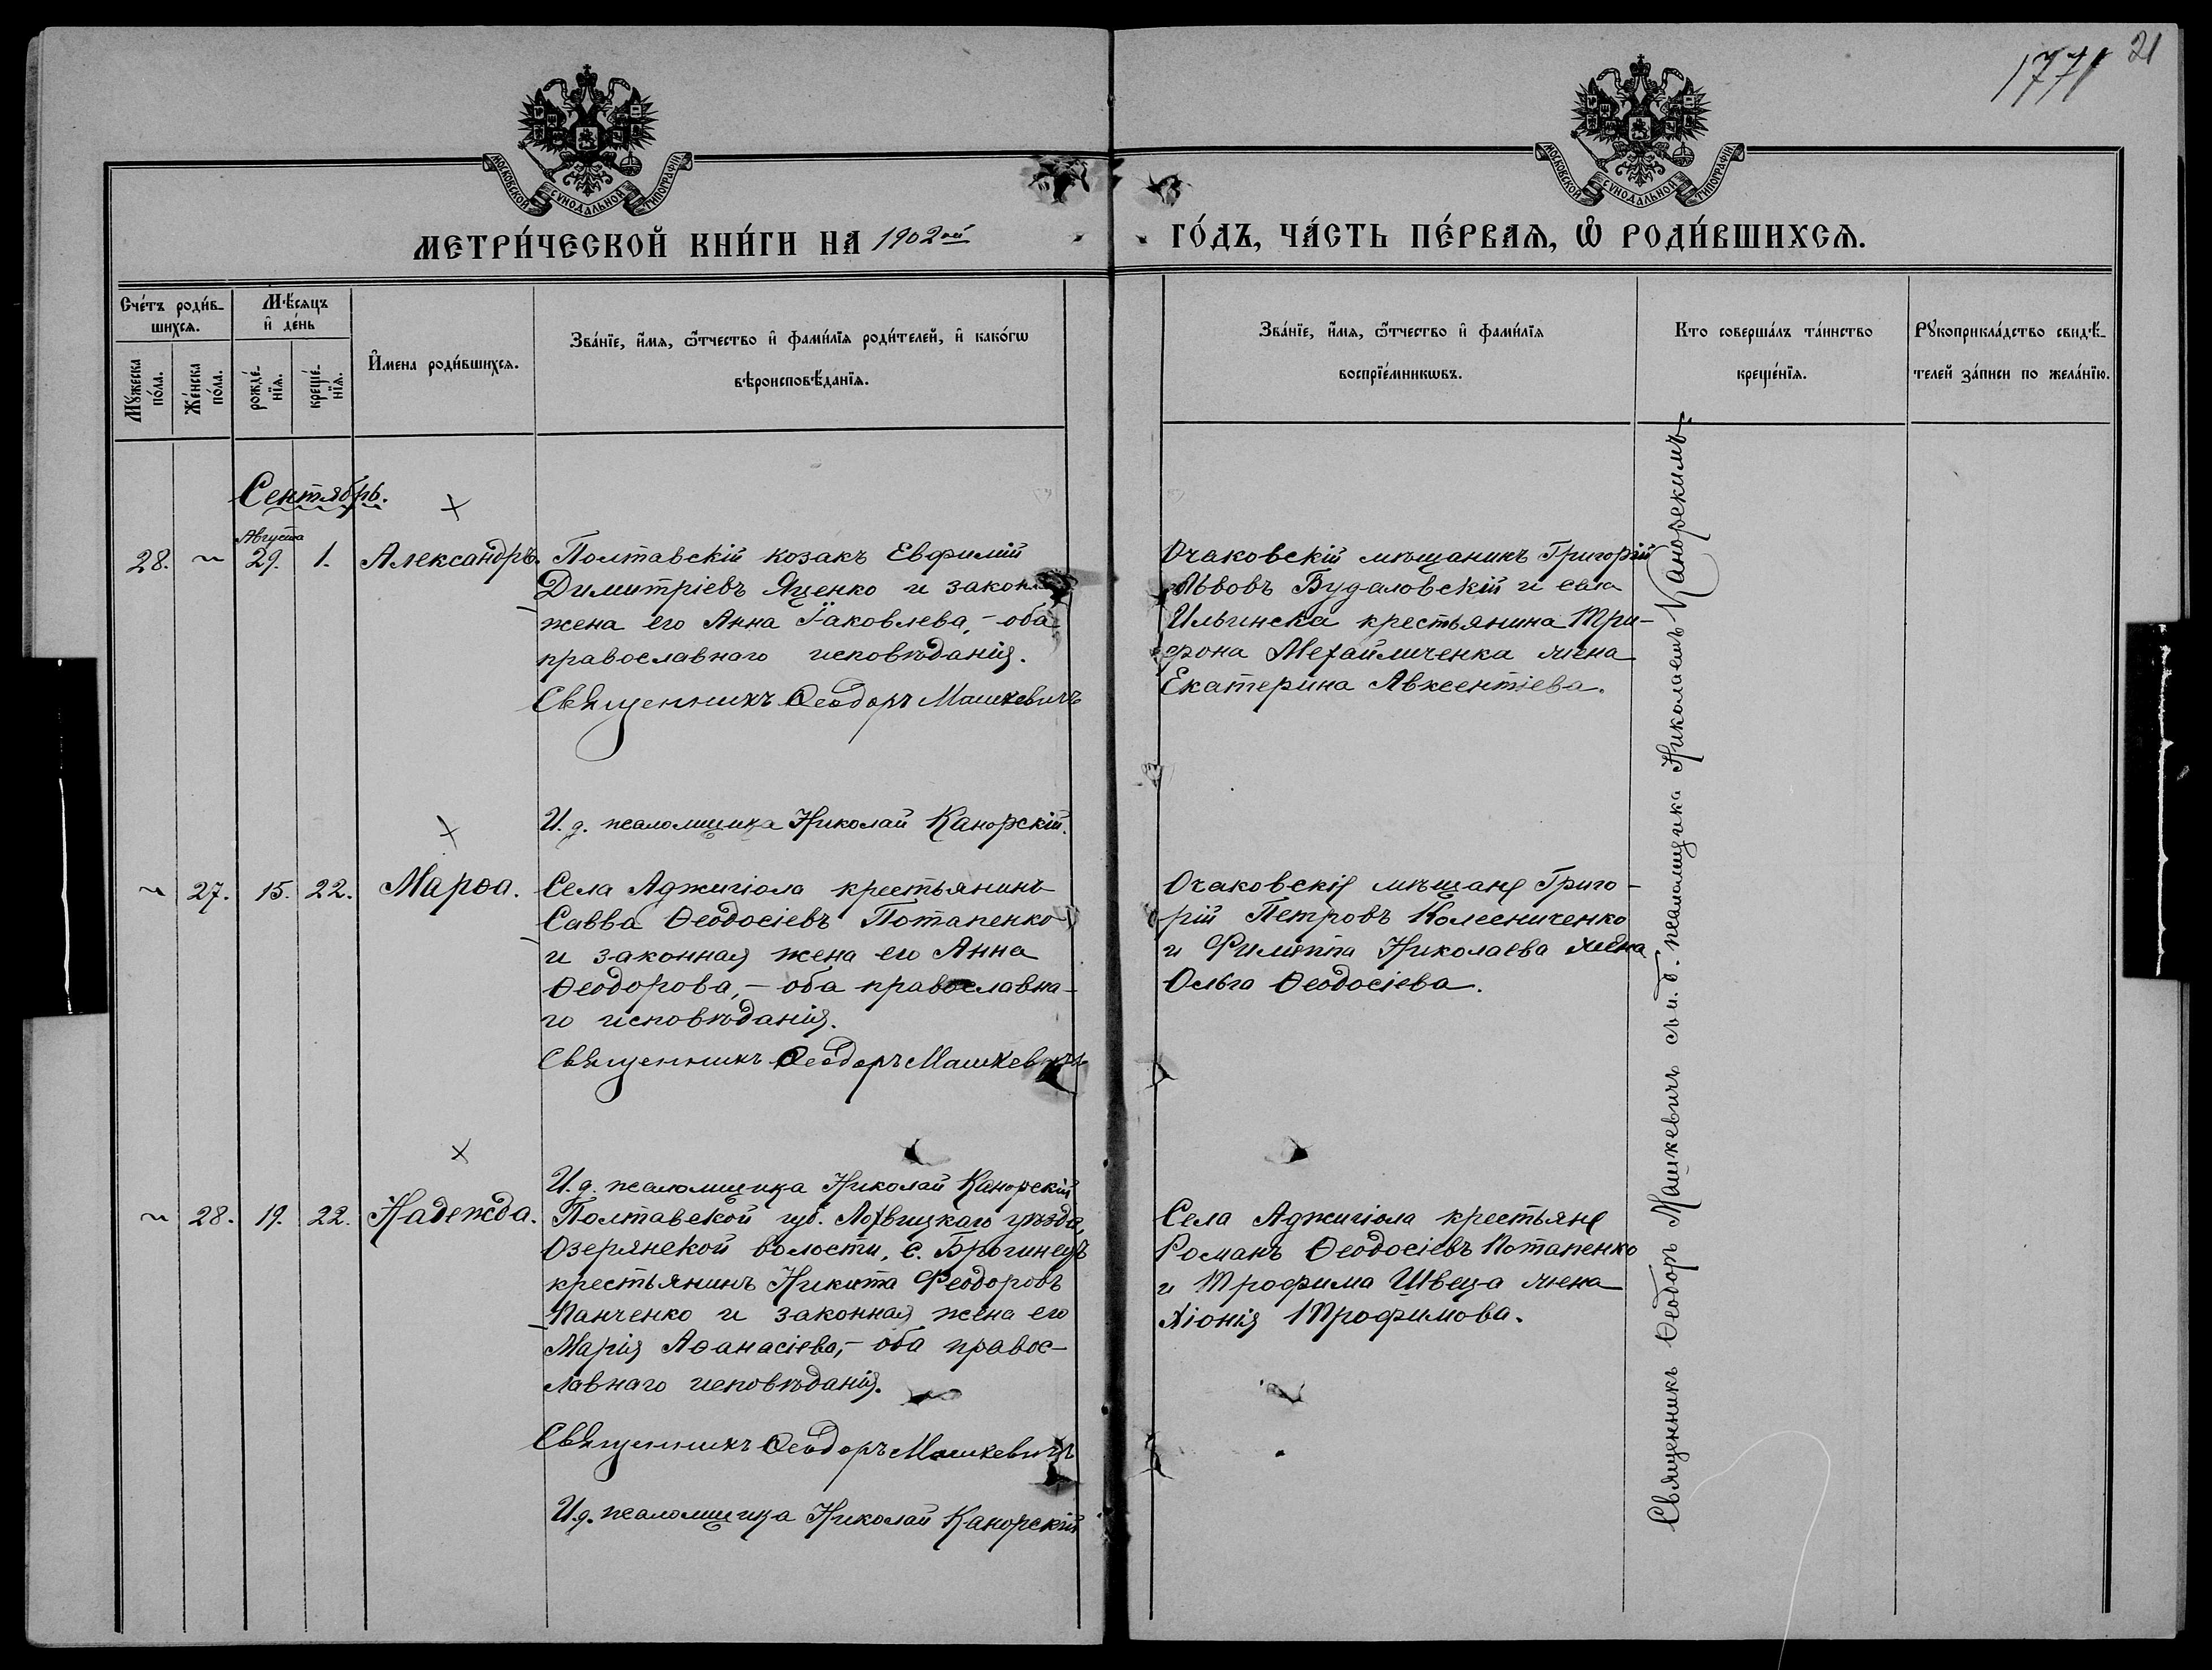 1771 21
МОСКОВСКОЙ СѴНОДАЛЬНОЙ ТИПОГРАФІИ
МОСКОВСКОЙ СѴНОДАЛЬНОЙ ТИПОГРАФІИ
МЕТРИ́ЧЕСКОЙ КНИ́ГИ НА 1902ой
ГО́ДЪ, ЧА́СТЬ ПЕ́РВАѦ, Ѽ РОДИ́ВШИХСѦ.
Сче́тъ роди́в-
шихсѧ.
Мꙋ́жеска
по́ла.
Же́нска
по́ла.
Мѣ́сѧцъ
и҆ де́нь
рожде́-
нїѧ.
креще́-
нїѧ.
И҆мена роди́вшихсѧ.
Зва́нїе, и҆́мѧ, ѻ҆́тчество и҆ фами́лїѧ роди́телей, и҆ како́гѡ
вѣроисповѣ́данїѧ.
Зва́нїе, и҆́мѧ, ѻ҆́тчество и҆ фами́лїѧ
воспрїе́мникѡвъ.
Кто соверша́лъ та́инство
креще́нїѧ.
Рꙋкоприкла́дство свидѣ́-
телей за́писи по жела́нїю.
Сентябрь.
Августа
28. 29. 1. Александръ.
Полтавскій козакъ Евфимій
Димитріевъ Яценко и законная
жена его Анна Іаковлева, - оба
православнаго исповѣданія.
Священникъ Ѳеодоръ Машкевичъ
И. д. псаломщика Николай Канорскій.
Очаковскій мѣщанинъ Григорій
Львовъ Будаловскій и села
Ильинска крестьянина Три-
фона Мехайличенка жена
Екатерина Авксентіева.
27. 15. 22. Марѳа.
Села Аджигіола крестьянинъ
Савва Ѳеодосіевъ Потапенко
и законная жена его Анна
Ѳеодорова, - оба православна-
го исповѣданія.
Священникъ Ѳеодоръ Машкевичъ
И. д. псаломщика Николай Канорскій
Очаковскіе мѣщане Григо-
рій Петровъ Колесниченко
и Филиппа Николаева жена
Ольга Ѳеодосіева.
28. 19. 22. Надежда.
Полтавской губ. Лохвицкаго уѣзда,
Озерянской волости, с. Брагинецъ
крестьянинъ Никита Феодоровъ
Панченко и законная жена его
Марія Аѳанасіева, - оба правос-
лавнаго исповѣданія.
Священникъ Ѳеодоръ Машкевичъ
И. д. псаломщика Николай Канорскій
Села Аджигіола крестьяне
Романъ Ѳеодосіевъ Потапенко
и Трофима Швеца жена
Хіонія Трофимова.
Священникъ Ѳеодоръ Машкевичъ съ и. д. псаломщика Николаемъ Канорскимъ.